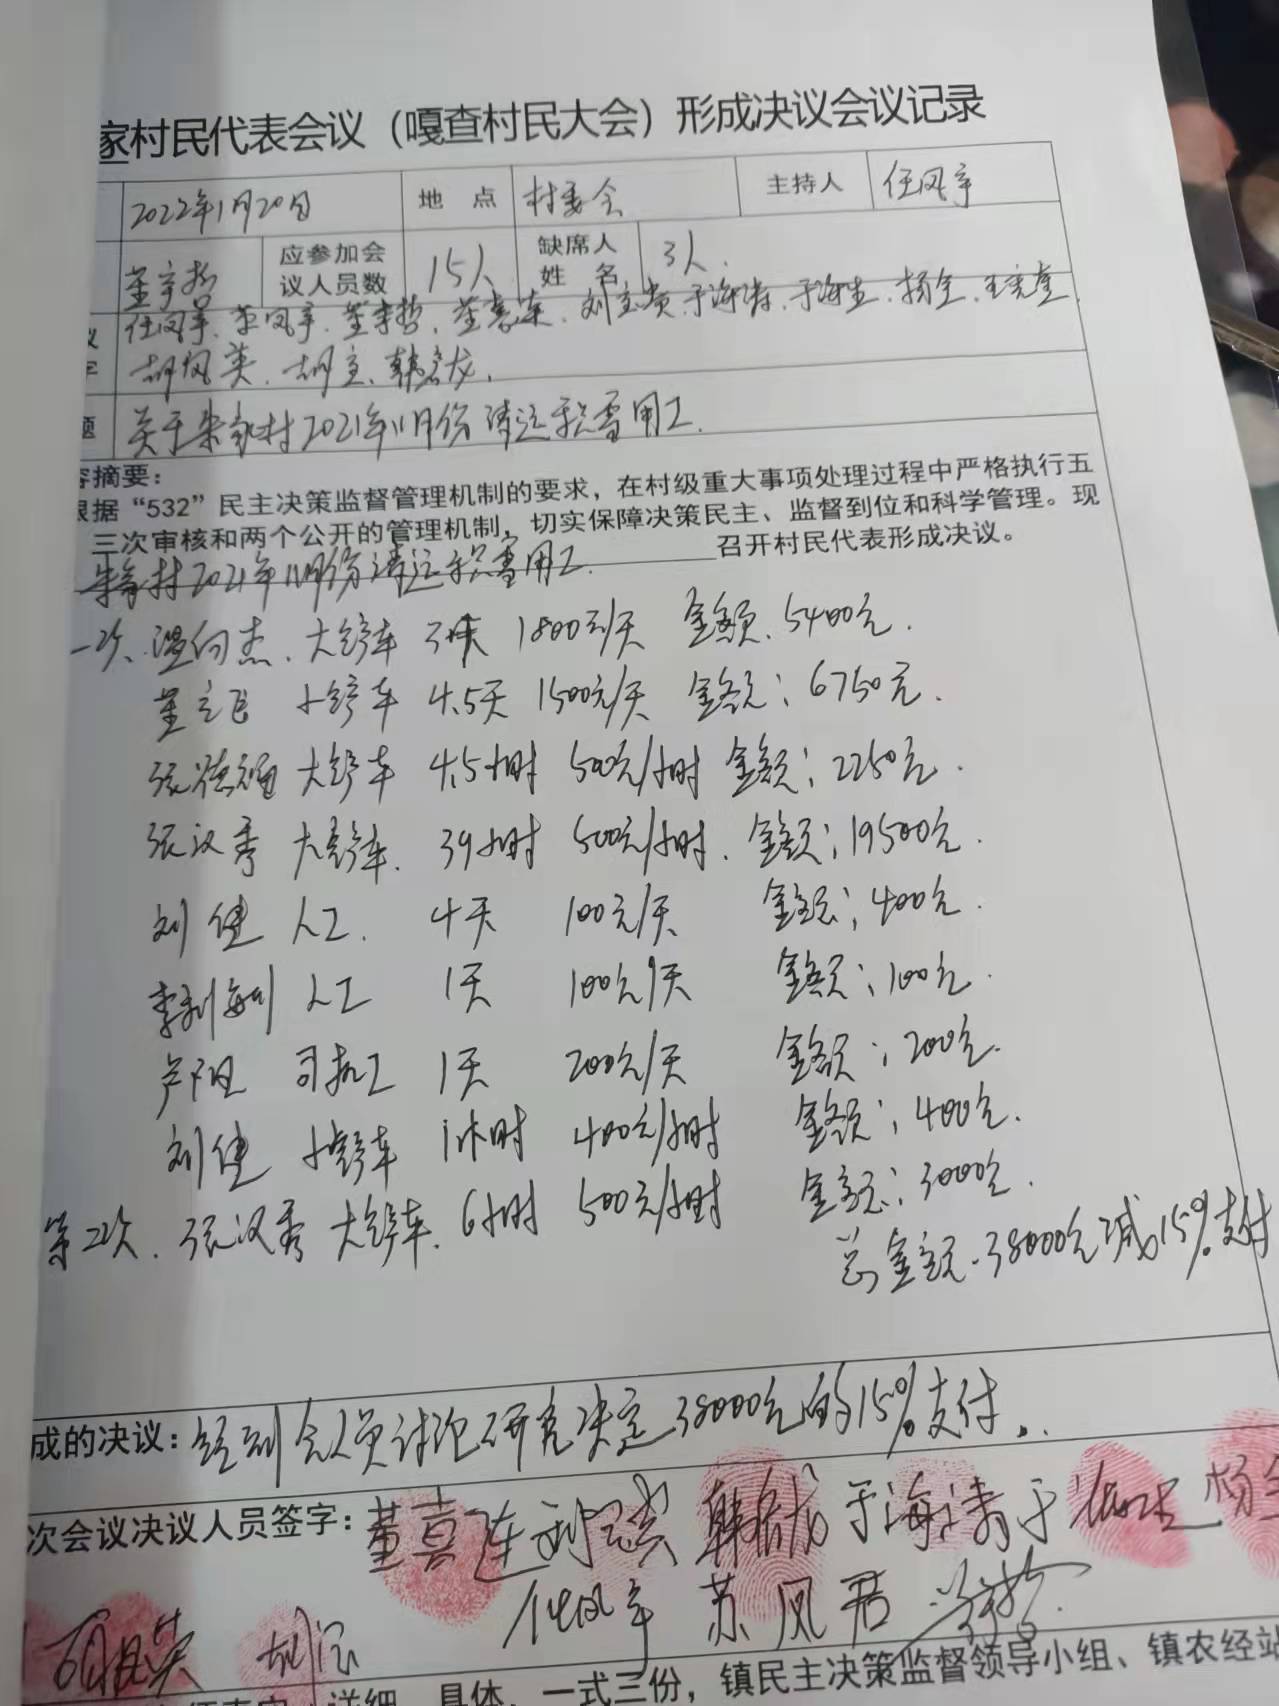 家村民代表会议（嘎查村民大会）形成决议会议记录
2022年1月20日 地 点 村委会 主持人 任凤军
董孝哲 应参加会议人员数 15人 缺席人姓 名 3人.
任凤军、董孝哲、刘宝贵、于海涛、于海生、杨全、王宪奎、
胡凤英、胡宝、韩彦龙、
题 关于朱家村2021年11月份清运积雪用工.
容摘要：
根据“532”民主决策监督管理机制的要求，在村级重大事项处理过程中严格执行五
三次审核和两个公开的管理机制，切实保障决策民主、监督到位和科学管理。现
朱家村2021年11月份清运积雪用工. 召开村民代表形成决议。
一次、温向杰、大铲车 3天 1800元/天 金额、5400元.
董立飞 小铲车 4.5天 1500元/天 金额：6750元.
张德通 大铲车 4.5小时 500元/小时 金额：2250元.
张汉秀 大铲车. 39小时 500元/小时. 金额：19500元.
刘健 人工. 4天 100元/天 金额：400元.
李利 人工 1天 100元/天 金额：100元.
卢阳 司机工 1天 200元/天 金额：200元.
刘健 小铲车 1小时 400元/小时 金额：400元.
第二次、张汉秀 大铲车. 6小时 500元/小时 金额：3000元.
总金额.38000元减15%支付
成的决议：经到会人员讨论研究决定38000元的15%支付.
次会议决议人员签字：董喜连 刘宝贵 韩彦龙 于海涛 于海生 杨全
胡凤英 胡宝 任凤军 苏凤君 董孝哲
详细、具体，一式三份，镇民主决策监督领导小组、镇农经站